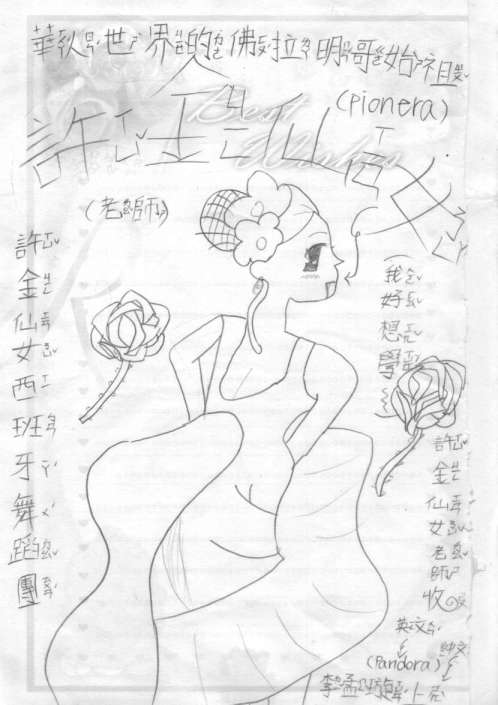 華人世界的佛拉明哥始祖
(pionera)
Best
許金仙
(老師)
許金仙女西班牙舞蹈團
我好想學
許金仙女老師收
英文
(Pandora)
上